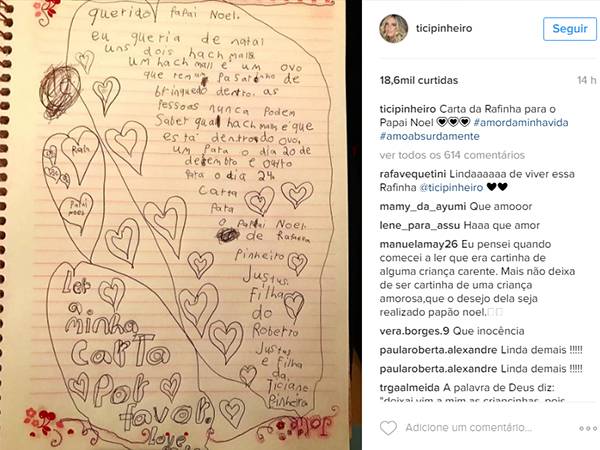 querido PAPAi NOEL.
eu queria de natal
uns dois hach malls
um hach mall é um ovo
que tem um pasarinho de
brinquedo dentro. as
pessoas nunca podem
saber qual hach malls é que
está dentro do ovo,
um para o dia 20 de
dezembro e outro
para o dia 24.
Carta
Para
o PAPAI NOEL.
de Rafaela
Pinheiro
Justus.
Filha
do
Roberto
Justus
e Filha
da.
Ticiane
Pinheiro
Rafa
Papai
noel
ler
a
minha
carta
Por
favor.
Love
amor
ticipinheiro
Seguir
18,6mil curtidas
14 h
ticipinheiro Carta da Rafinha para o
Papai Noel 🖤🖤🖤 #amordaminhavida
#amoabsurdamente
ver todos os 614 comentários
rafavequetini Lindaaaaaa de viver essa
Rafinha @ticipinheiro 🖤🖤
mamy_da_ayumi Que amooor
lene_para_assu Haaa que amor
manuelamay26 Eu pensei quando
comecei a ler que era cartinha de
alguma criança carente. Mais não deixa
de ser cartinha de uma criança
amorosa,que o desejo dela seja
realizado papão noel.
vera.borges.9 Que inocência
paularoberta.alexandre Linda demais !!!!!
paularoberta.alexandre Linda demais !!!!!
trgaalmeida A palavra de Deus diz:
"deixai vim a mim as criancinhas, pois
Adicione um comentário...